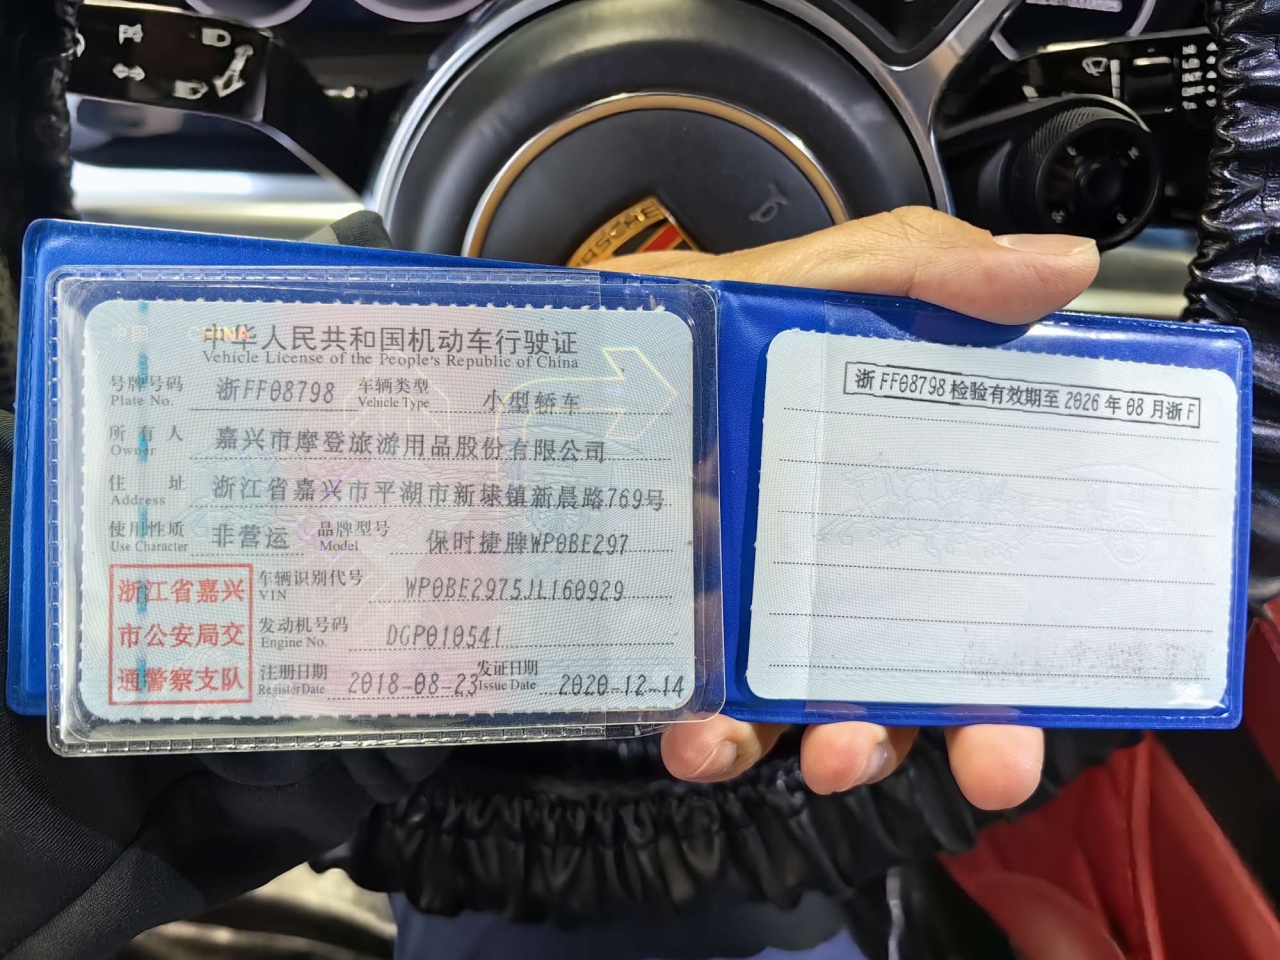 中国 CHINA
中华人民共和国机动车行驶证
Vehicle License of the People's Republic of China
号牌号码 浙FF08798 车辆类型 小型轿车
Plate No. Vehicle Type
所有人 嘉兴市摩登旅游用品股份有限公司
Owner
住址 浙江省嘉兴市平湖市新埭镇新晨路769号
Address
使用性质 非营运 品牌型号 保时捷牌WP0BE297
Use Character Model
浙江省嘉兴
市公安局交
通警察支队
车辆识别代号 WP0BE2975JL160929
VIN
发动机号码 DGP010541
Engine No.
注册日期 2018-08-23 发证日期 2020-12-14
Register Date Issue Date
浙FF08798检验有效期至2026年08月浙F
PORSCHE